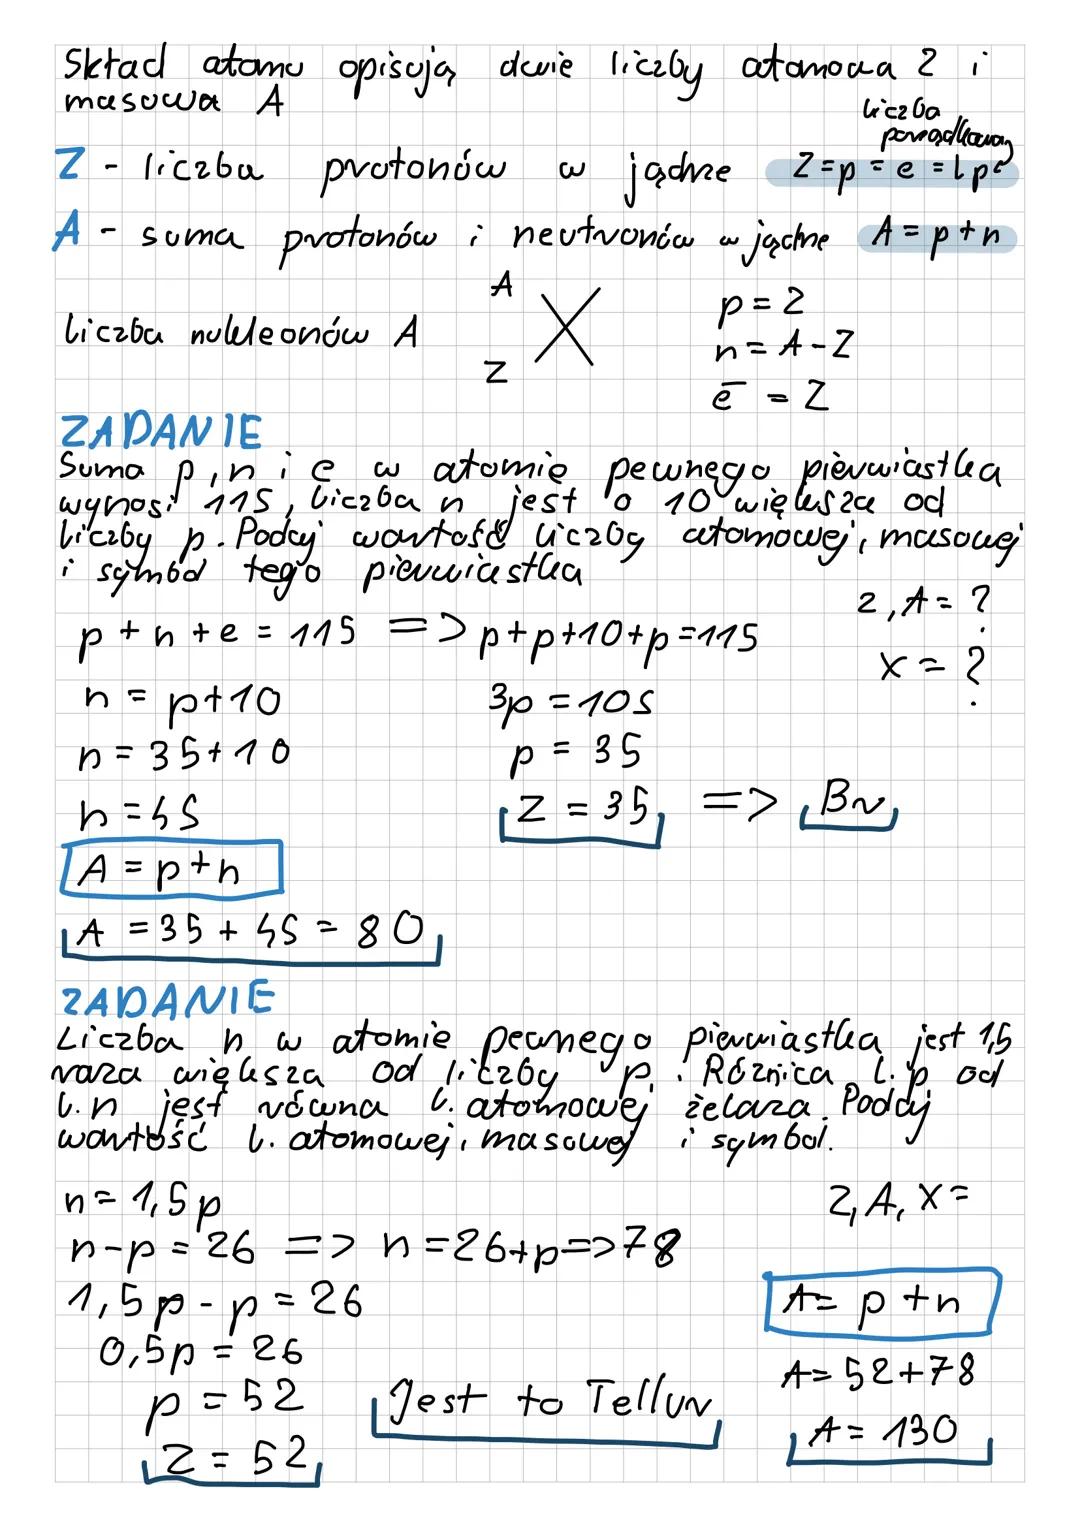 Skład atomu opisują dwie liczby atomowa Z i
masowa A
liczba
porządkowa
Z - liczba protonów w jądrze Z=p=e=Lp
A - suma protonów i neutronów w jądrze A=p+n
liczba nukleonów A
A
X
Z
p=Z
n=A-Z
e⁻=Z
ZADANIE
Suma p, n i e w atomie pewnego pierwiastka
wynosi 115, liczba n jest o 10 większa od
liczby p. Podaj wartość liczby atomowej, masowej
i symbol tego pierwiastka
Z, A = ?
X = ?
p+n+e=115 => p+p+10+p=115
n=p+10
3p=105
n=35+10
p=35
n=45
Z=35 => Br
A=p+n
A=35+45=80
ZADANIE
Liczba n w atomie pewnego pierwiastka jest 1,5
raza większa od liczby p. Różnica l.p od
l.n jest równa l. atomowej żelaza. Podaj
wartość l. atomowej, masowej i symbol.
n=1,5p
Z, A, X=
n-p=26 => n=26+p=>78
1,5p-p=26
A=p+n
0,5p=26
A=52+78
p=52
Jest to Tellur
A=130
Z=52